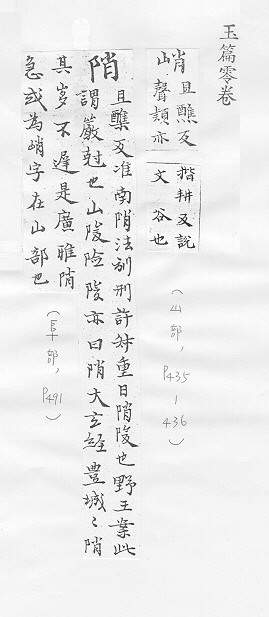 玉篇零卷
峭 且醮反
山聲類亦
揩耕反說
文谷也
(山部, P435-436)
陗 且醮反淮南陗法刻刑許叔重曰陗陖也野王案此
謂嚴尅也山陖險陖亦曰陗大玄經豐城〻陗
其岁不遲是廣雅陗
急或為峭字在山部也
(阜部, P491)